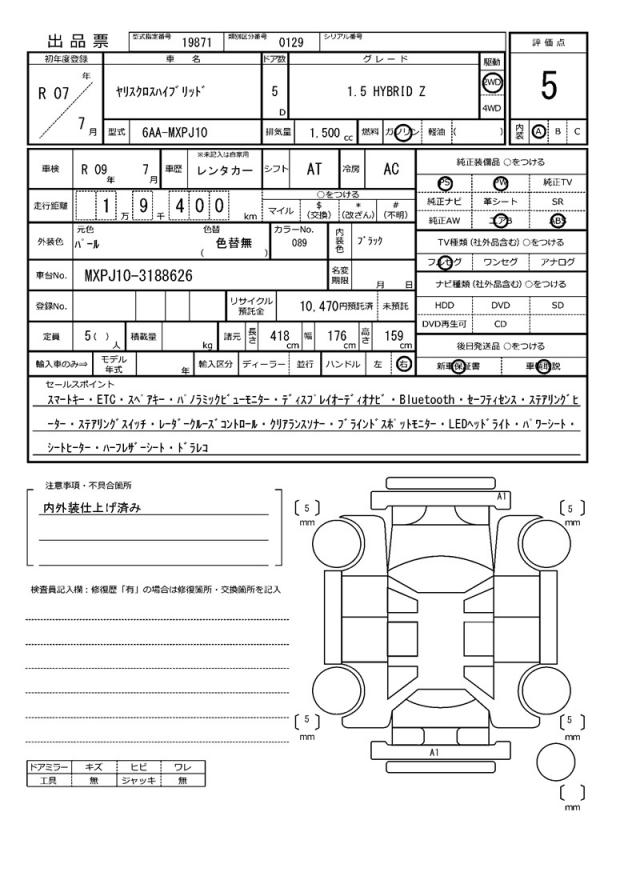 出品票 型式指定番号 19871 類別区分番号 0129 シリアル番号
評価点
5
内装 A B C
初年度登録 車名 ドア数 グレード 駆動
R 07 年 7 月
ヤリスクロスハイブリッド 5 D 1.5 HYBRID Z 2WD 4WD
型式 6AA-MXPJ10 排気量 1.500 cc 燃料 ガソリン 軽油 ( )
車検 R 09 年 7 月 車歴 ※未記入は自家用 レンタカー シフト AT 冷房 AC
走行距離 1 万 9 千 4 0 0 km
○をつける
マイル $ (交換) * (改ざん) # (不明)
外装色 元色 パール 色替 色替無 ( ) カラーNo. 089 内装色 ブラック
車台No. MXPJ10-3188626 名変期限 月 日
登録No. リサイクル預託金 10,470円預託済 未預託
定員 5( ) 人 積載量 kg 諸元 長さ 418 cm 幅 176 cm 高さ 159 cm
輸入車のみ⇒ モデル年式 年 輸入区分 ディーラー 並行 ハンドル 左 右
純正装備品 ○をつける
PS PW 純正TV
純正ナビ 革シート SR
純正AW エアB ABS
TV種類 (社外品含む) ○をつける
フルセグ ワンセグ アナログ
ナビ種類 (社外品含む) ○をつける
HDD DVD SD
DVD再生可 CD
後日発送品 ○をつける
新車保証書 車輌取説
セールスポイント
スマートキー・ETC・スペアキー・パノラミックビューモニター・ディスプレイオーディオナビ・Bluetooth・セーフティセンス・ステアリングヒ
ーター・ステアリングスイッチ・レーダークルーズコントロール・クリアランスソナー・ブラインドスポットモニター・LEDヘッドライト・パワーシート・
シートヒーター・ハーフレザーシート・ドラレコ
注意事項・不具合箇所
内外装仕上げ済み
検査員記入欄：修復歴「有」の場合は修復箇所・交換箇所を記入
ドアミラー キズ ヒビ ワレ
工具 無 ジャッキ 無
A1
[5] mm
[5] mm
[5] mm
[5] mm
A1
[ ] mm